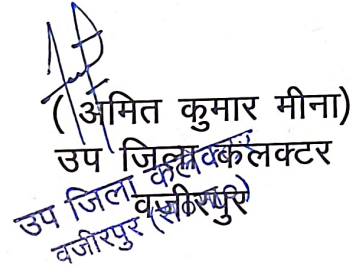 (अमित कुमार मीना)
उप जिला कलक्टर
वजीरपुर
उप जिला कलक्टर
वजीरपुर